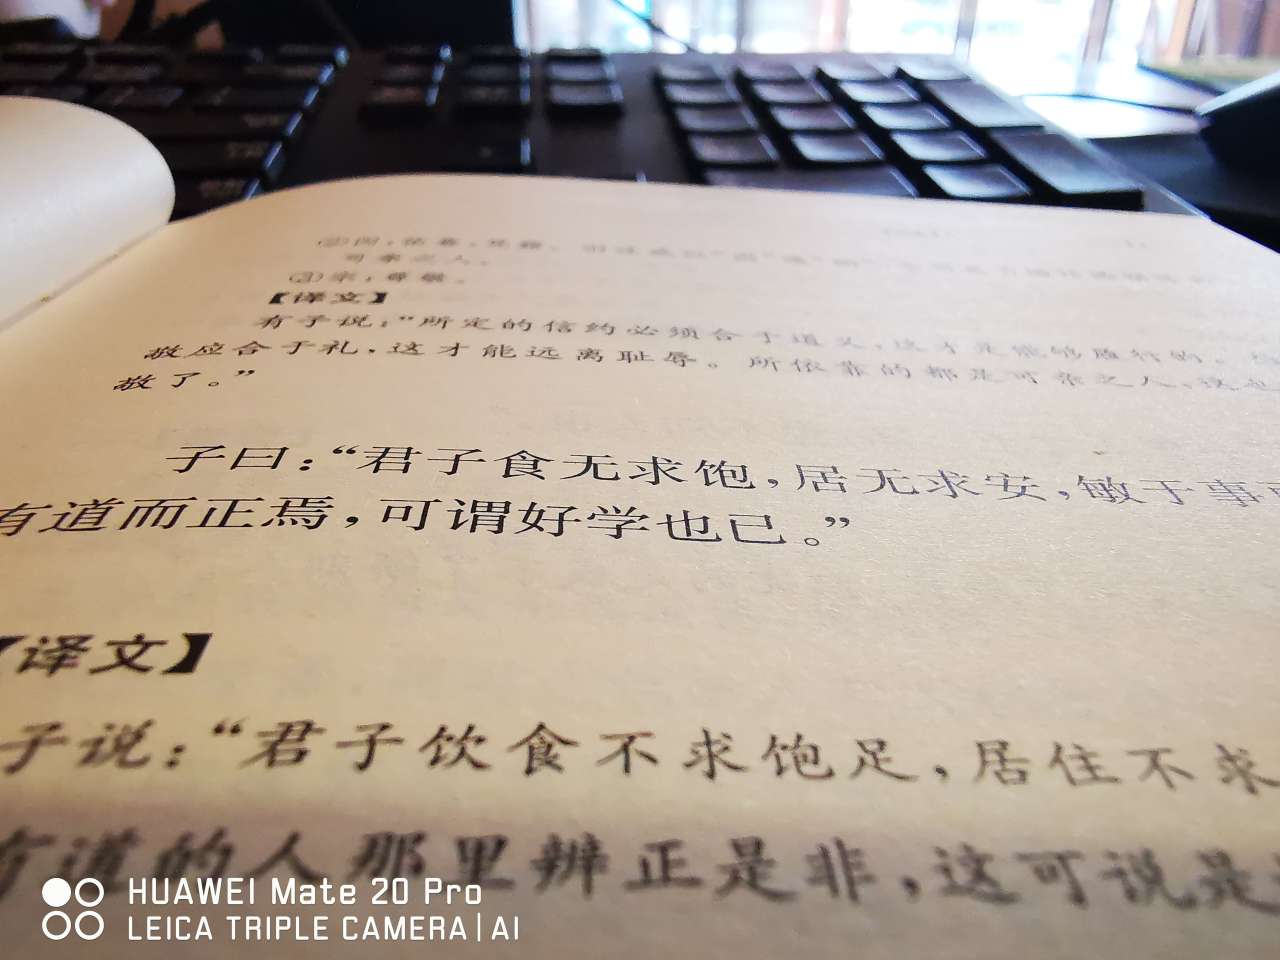 可亲之人。
③宗：尊敬。
【译文】
有子说：“所定的信约必须合于道义，这才是能够履行的。
敬应合于礼，这才能远离耻辱。所依靠的都是可亲之人，
敬了。”
子曰：“君子食无求饱，居无求安，敏于事
有道而正焉，可谓好学也已。”
【译文】
子说：“君子饮食不求饱足，居住不求
有道的人那里辨正是非，这可说是
HUAWEI Mate 20 Pro
LEICA TRIPLE CAMERA|AI